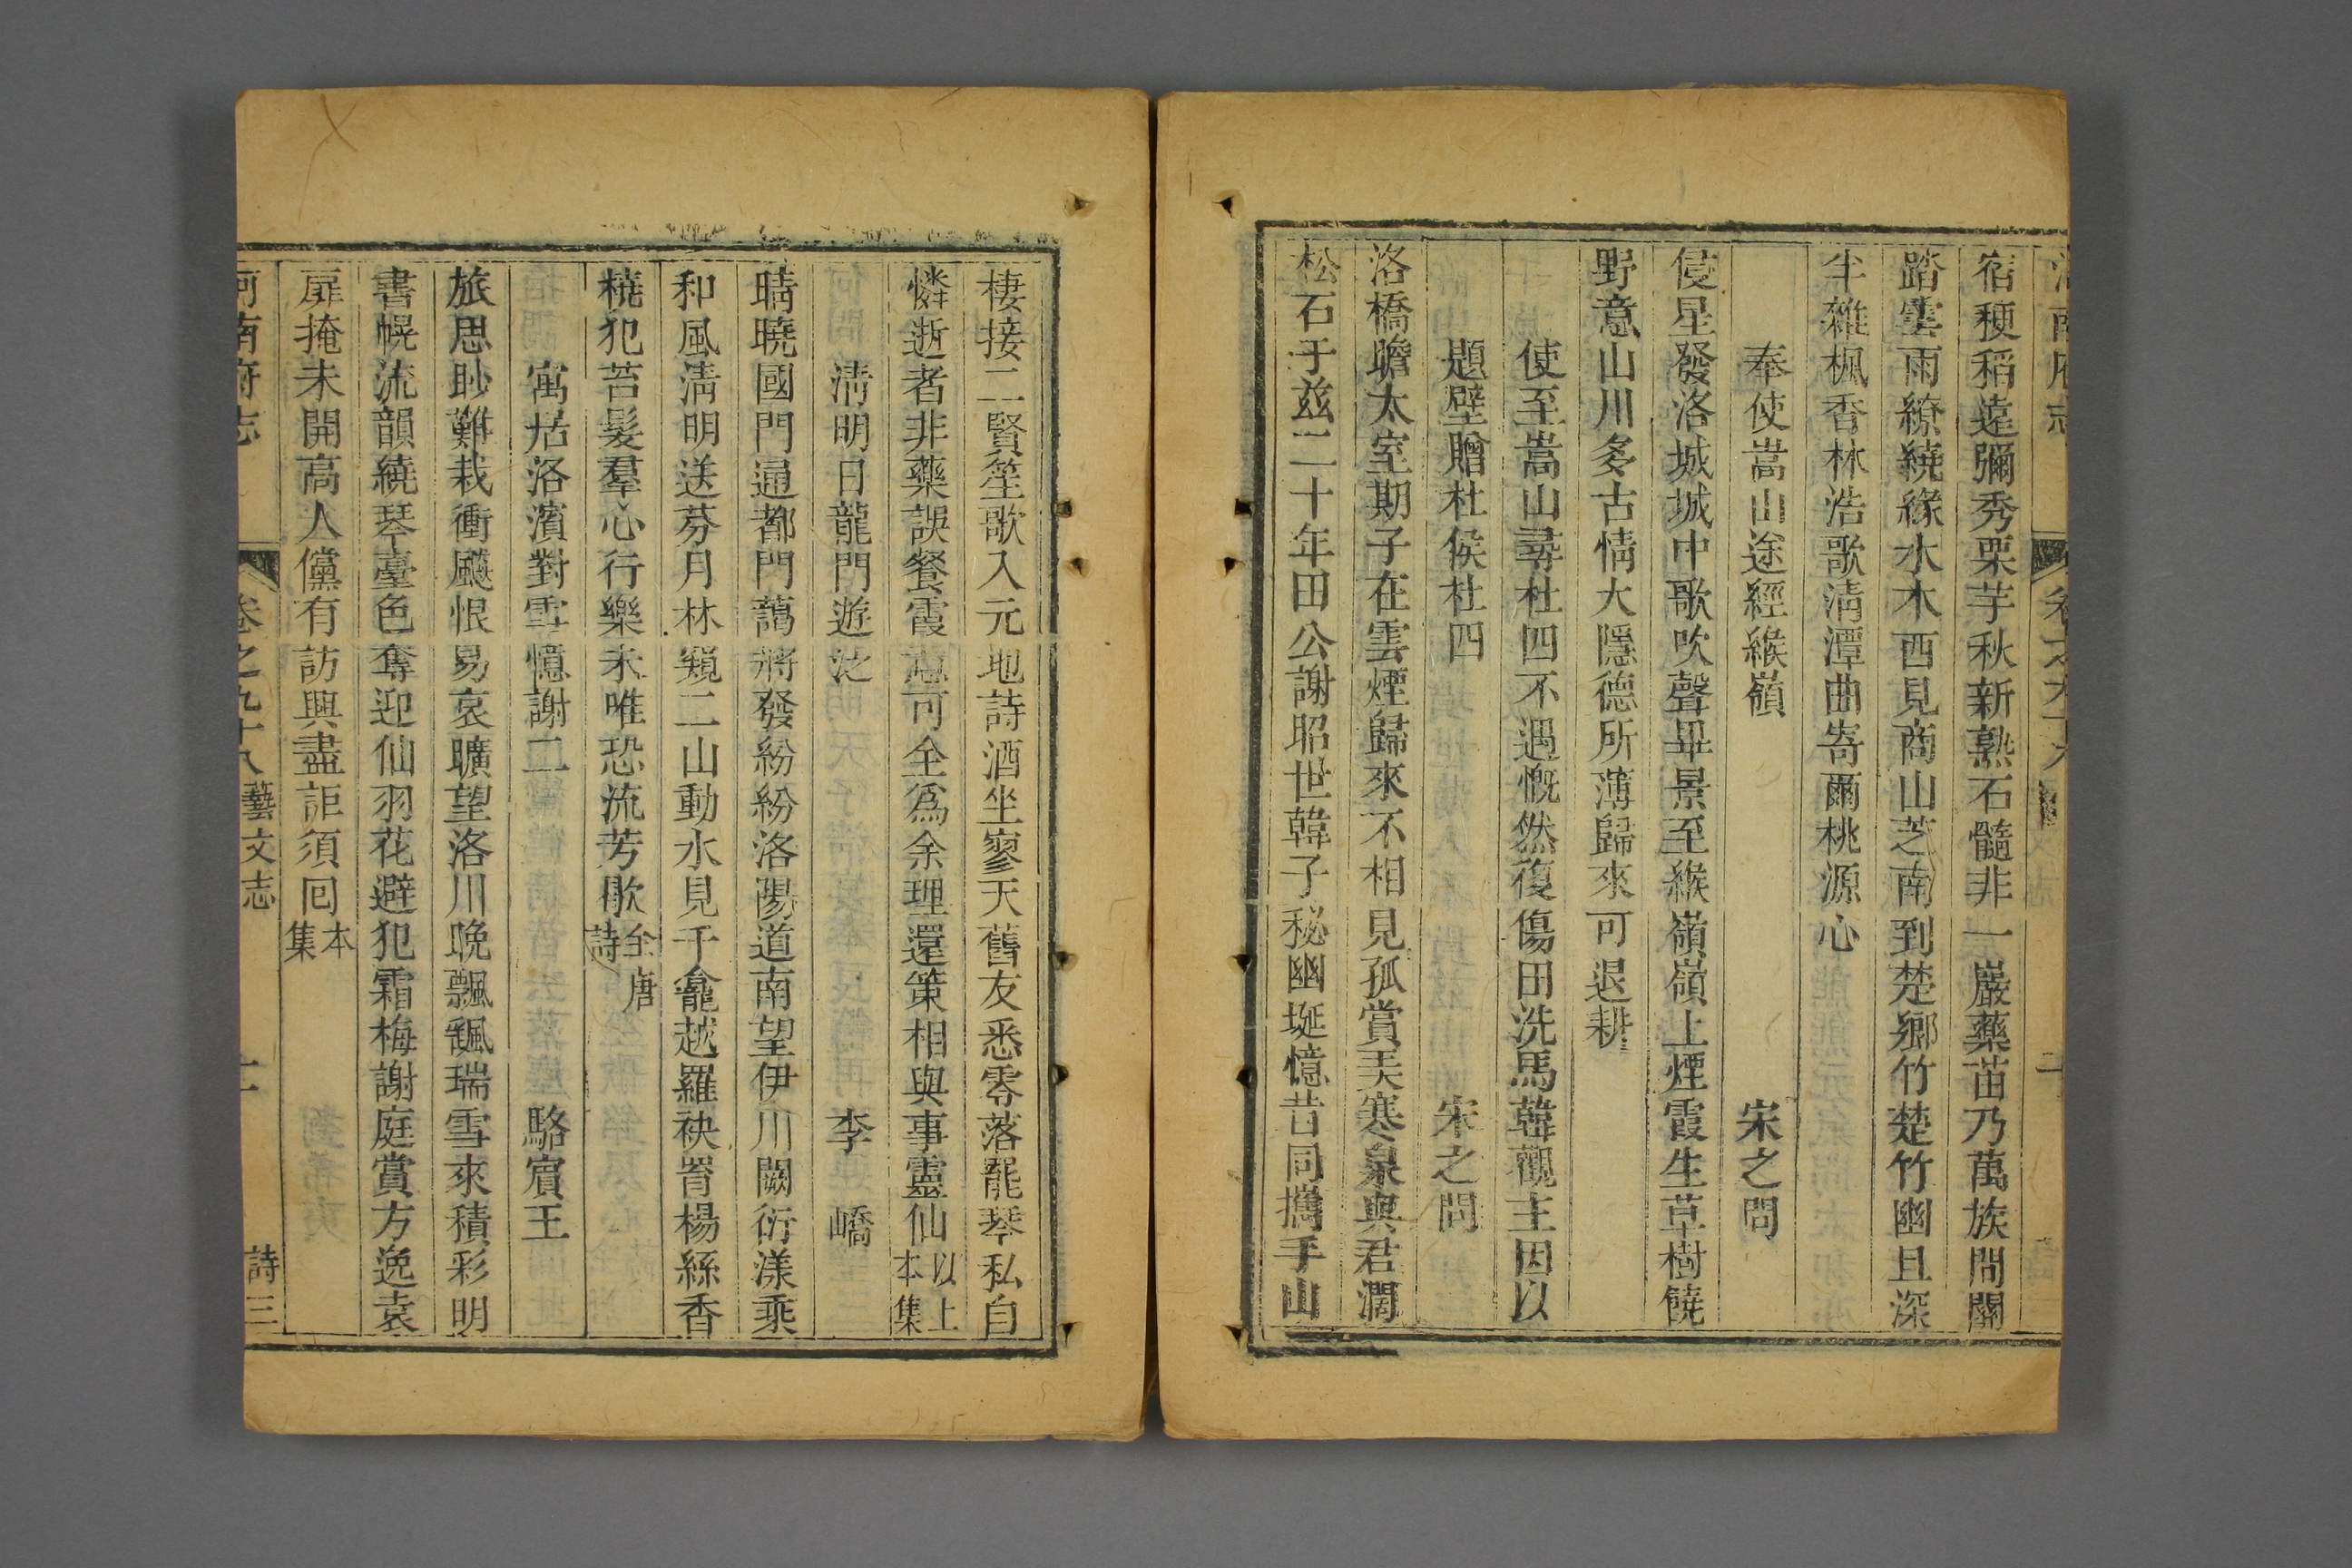 宿稉稻遠彌秀栗芋秋新熟石髓非一巖藥苗乃萬族間關
踏雲雨繚繞緣水木西見商山芝南到楚鄉竹楚竹幽且深
半雜楓香林浩歌清潭曲寄爾桃源心
奉使嵩山途經緱嶺 宋之問
侵星發洛城城中歌吹聲畢景至緱嶺嶺上煙霞生草樹饒
野意山川多古情大隱德所薄歸來可退耕
使至嵩山尋杜四不遇慨然復傷田洗馬韓觀主因以
題壁贈杜侯杜四 宋之問
洛橋瞻太室期子在雲煙歸來不相見孤賞弄寒泉與君濶
松石于兹二十年田公謝昭世韓子秘幽埏憶昔同攜手山
棲接二賢笙歌入元地詩酒坐寥天舊友悉零落罷琴私自
憐逝者非藥誤餐霞意可全爲余理還策相與事靈仙以上本集
清明日龍門遊泛 李嶠
晴曉國門通都門藹將發紛紛洛陽道南望伊川闕衍漾乘
和風清明送芬月林窺二山動水見千龕越羅袂胥楊絲香
橈犯苔髮羣心行樂未唯恐流芳歇全唐詩
寓居洛濱對雪憶謝二 駱賓王
旅思眇難裁衝飈恨易哀曠望洛川晚飄颻瑞雪來積彩明
書幌流韻繞琴臺色奪迎仙羽花避犯霜梅謝庭賞方逸袁
扉掩未開高人儻有訪興盡詎須囘本集
河南府志 卷之九十八 藝文志 二 詩三